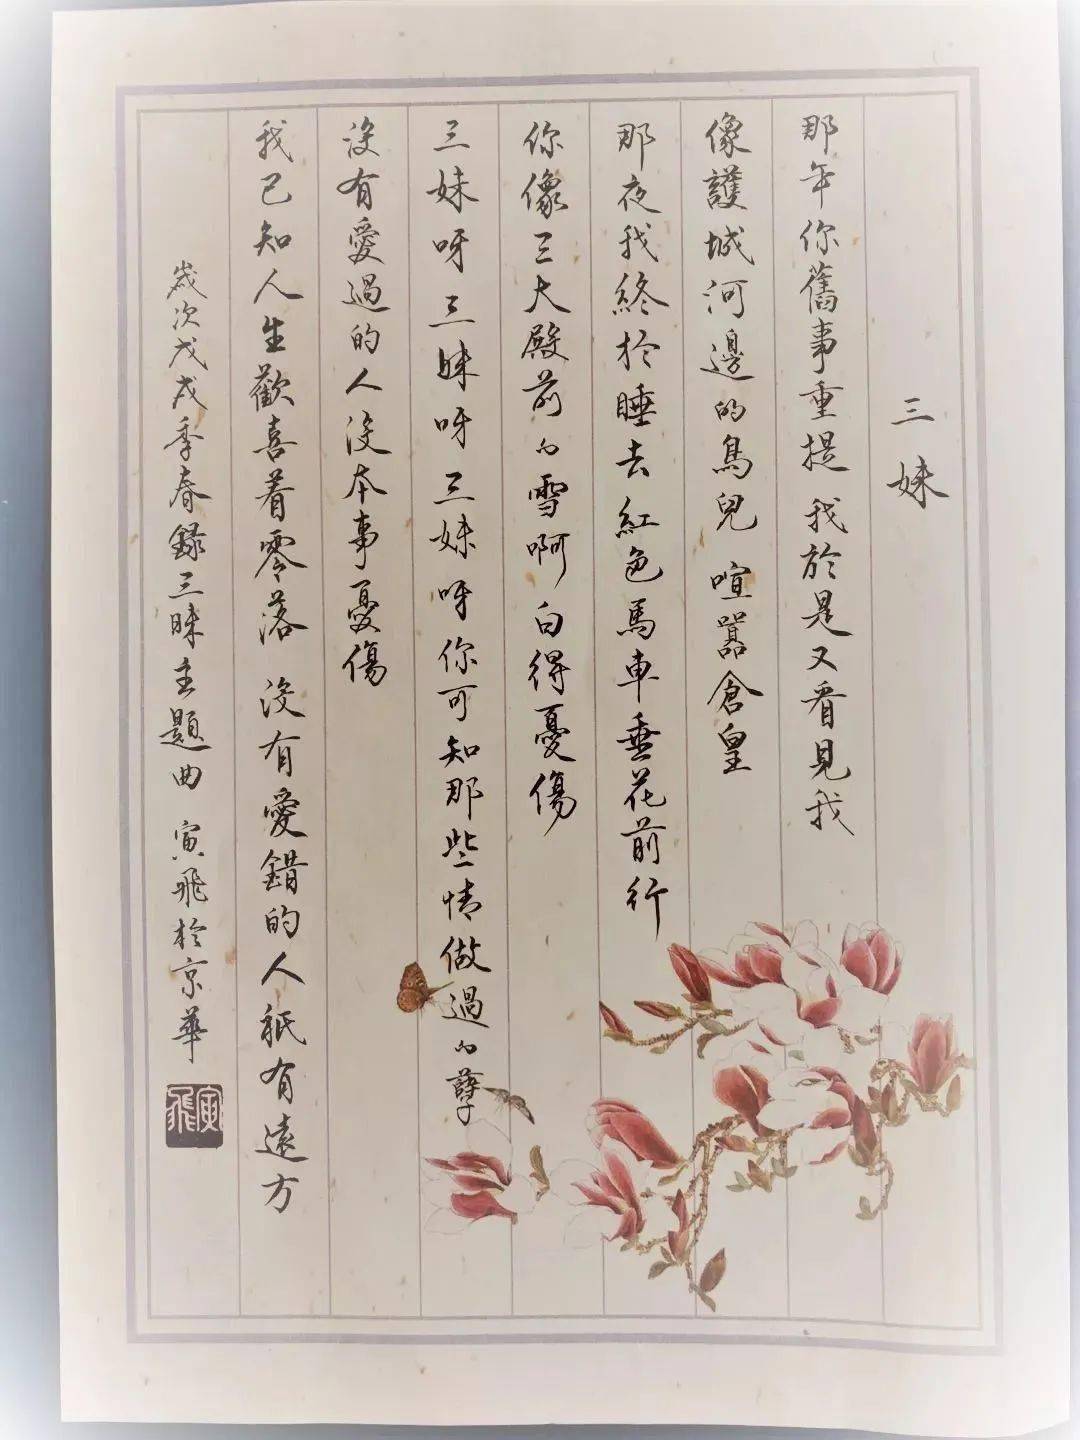 三妹
那年你舊事重提 我於是又看見我
像護城河邊的鳥兒 喧囂倉皇
那夜我終於睡去紅色馬車垂花前行
你像三大殿前的雪啊白得憂傷
三妹呀 三妹呀三妹呀你可知那些情做過的孽
沒有愛過的人沒本事憂傷
我已知人生歡喜着零落 沒有愛錯的人祇有遠方
歲次戊戌季春錄三昧主題曲 寅飛於京華
寅飛